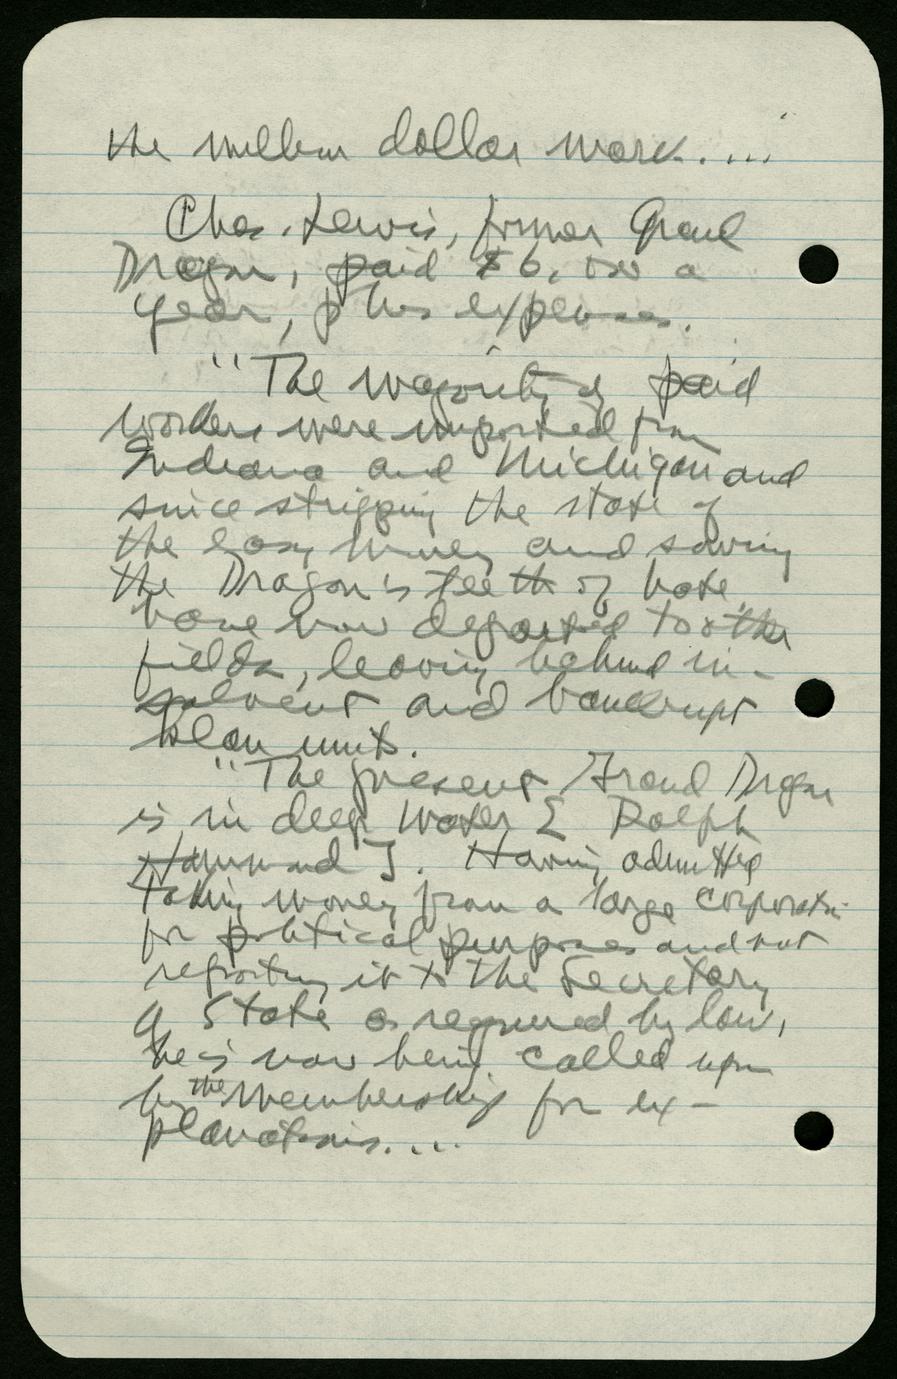 the million dollar mark.....
Chas. Lewis, former Grand
Dragon, paid $6,000 a
year, plus expenses.
"The majority of paid
workers were imported from
Indiana and Michigan and
since stripping the state of
the easy money and sowing
the Dragon's teeth of hate,
have now departed to other
fields, leaving behind in-
solvent and bankrupt
klan units.
"The present Grand Dragon
is in deep water [Ralph
Hammond]. Having admitted
taking money from a large corporation
for political purposes and not
reporting it to the Secretary
of State as required by law,
he is now being called upon
by the membership for ex-
planations....